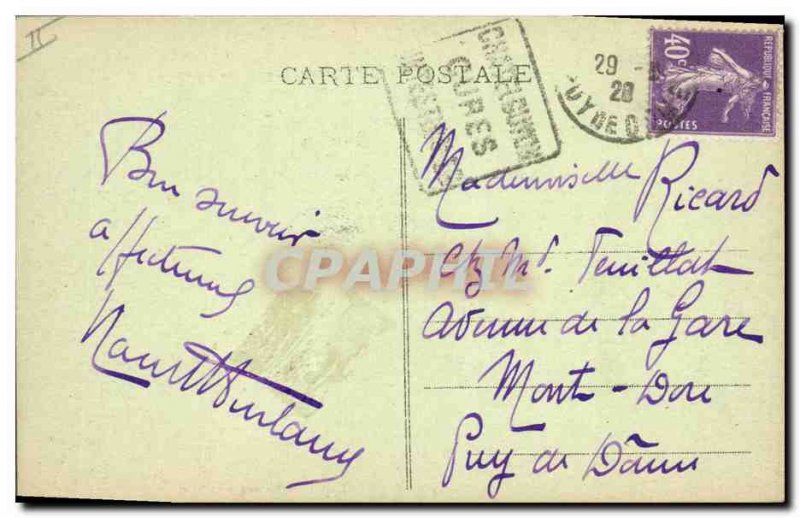 CARTE POSTALE
CHATELGUYON
CURES
29
20
PUY DE D
40c
REPUBLIQUE FRANÇAISE
POSTES
Bon souvenir
affectueux
Mademoiselle Ricard
chz Md. Feuillat
Avenue de la Gare
Mont-Dore
Puy de Dôme
CPAPHIL